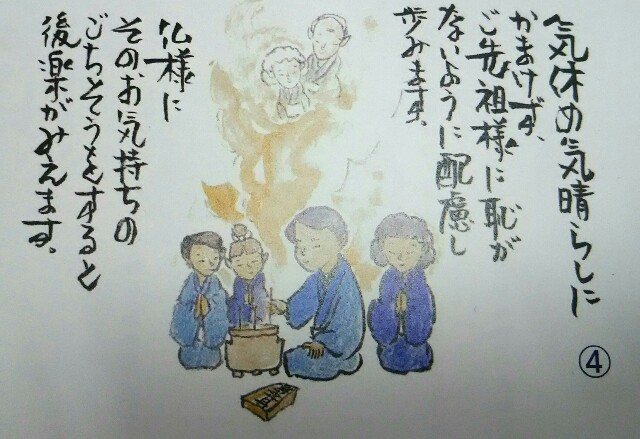 気休め気晴らしに
かまけず、
ご先祖様に恥が
ないように配慮し
歩みます。
仏様に
そのお気持ちの
ごちそうをすると
後楽がみえます。
④